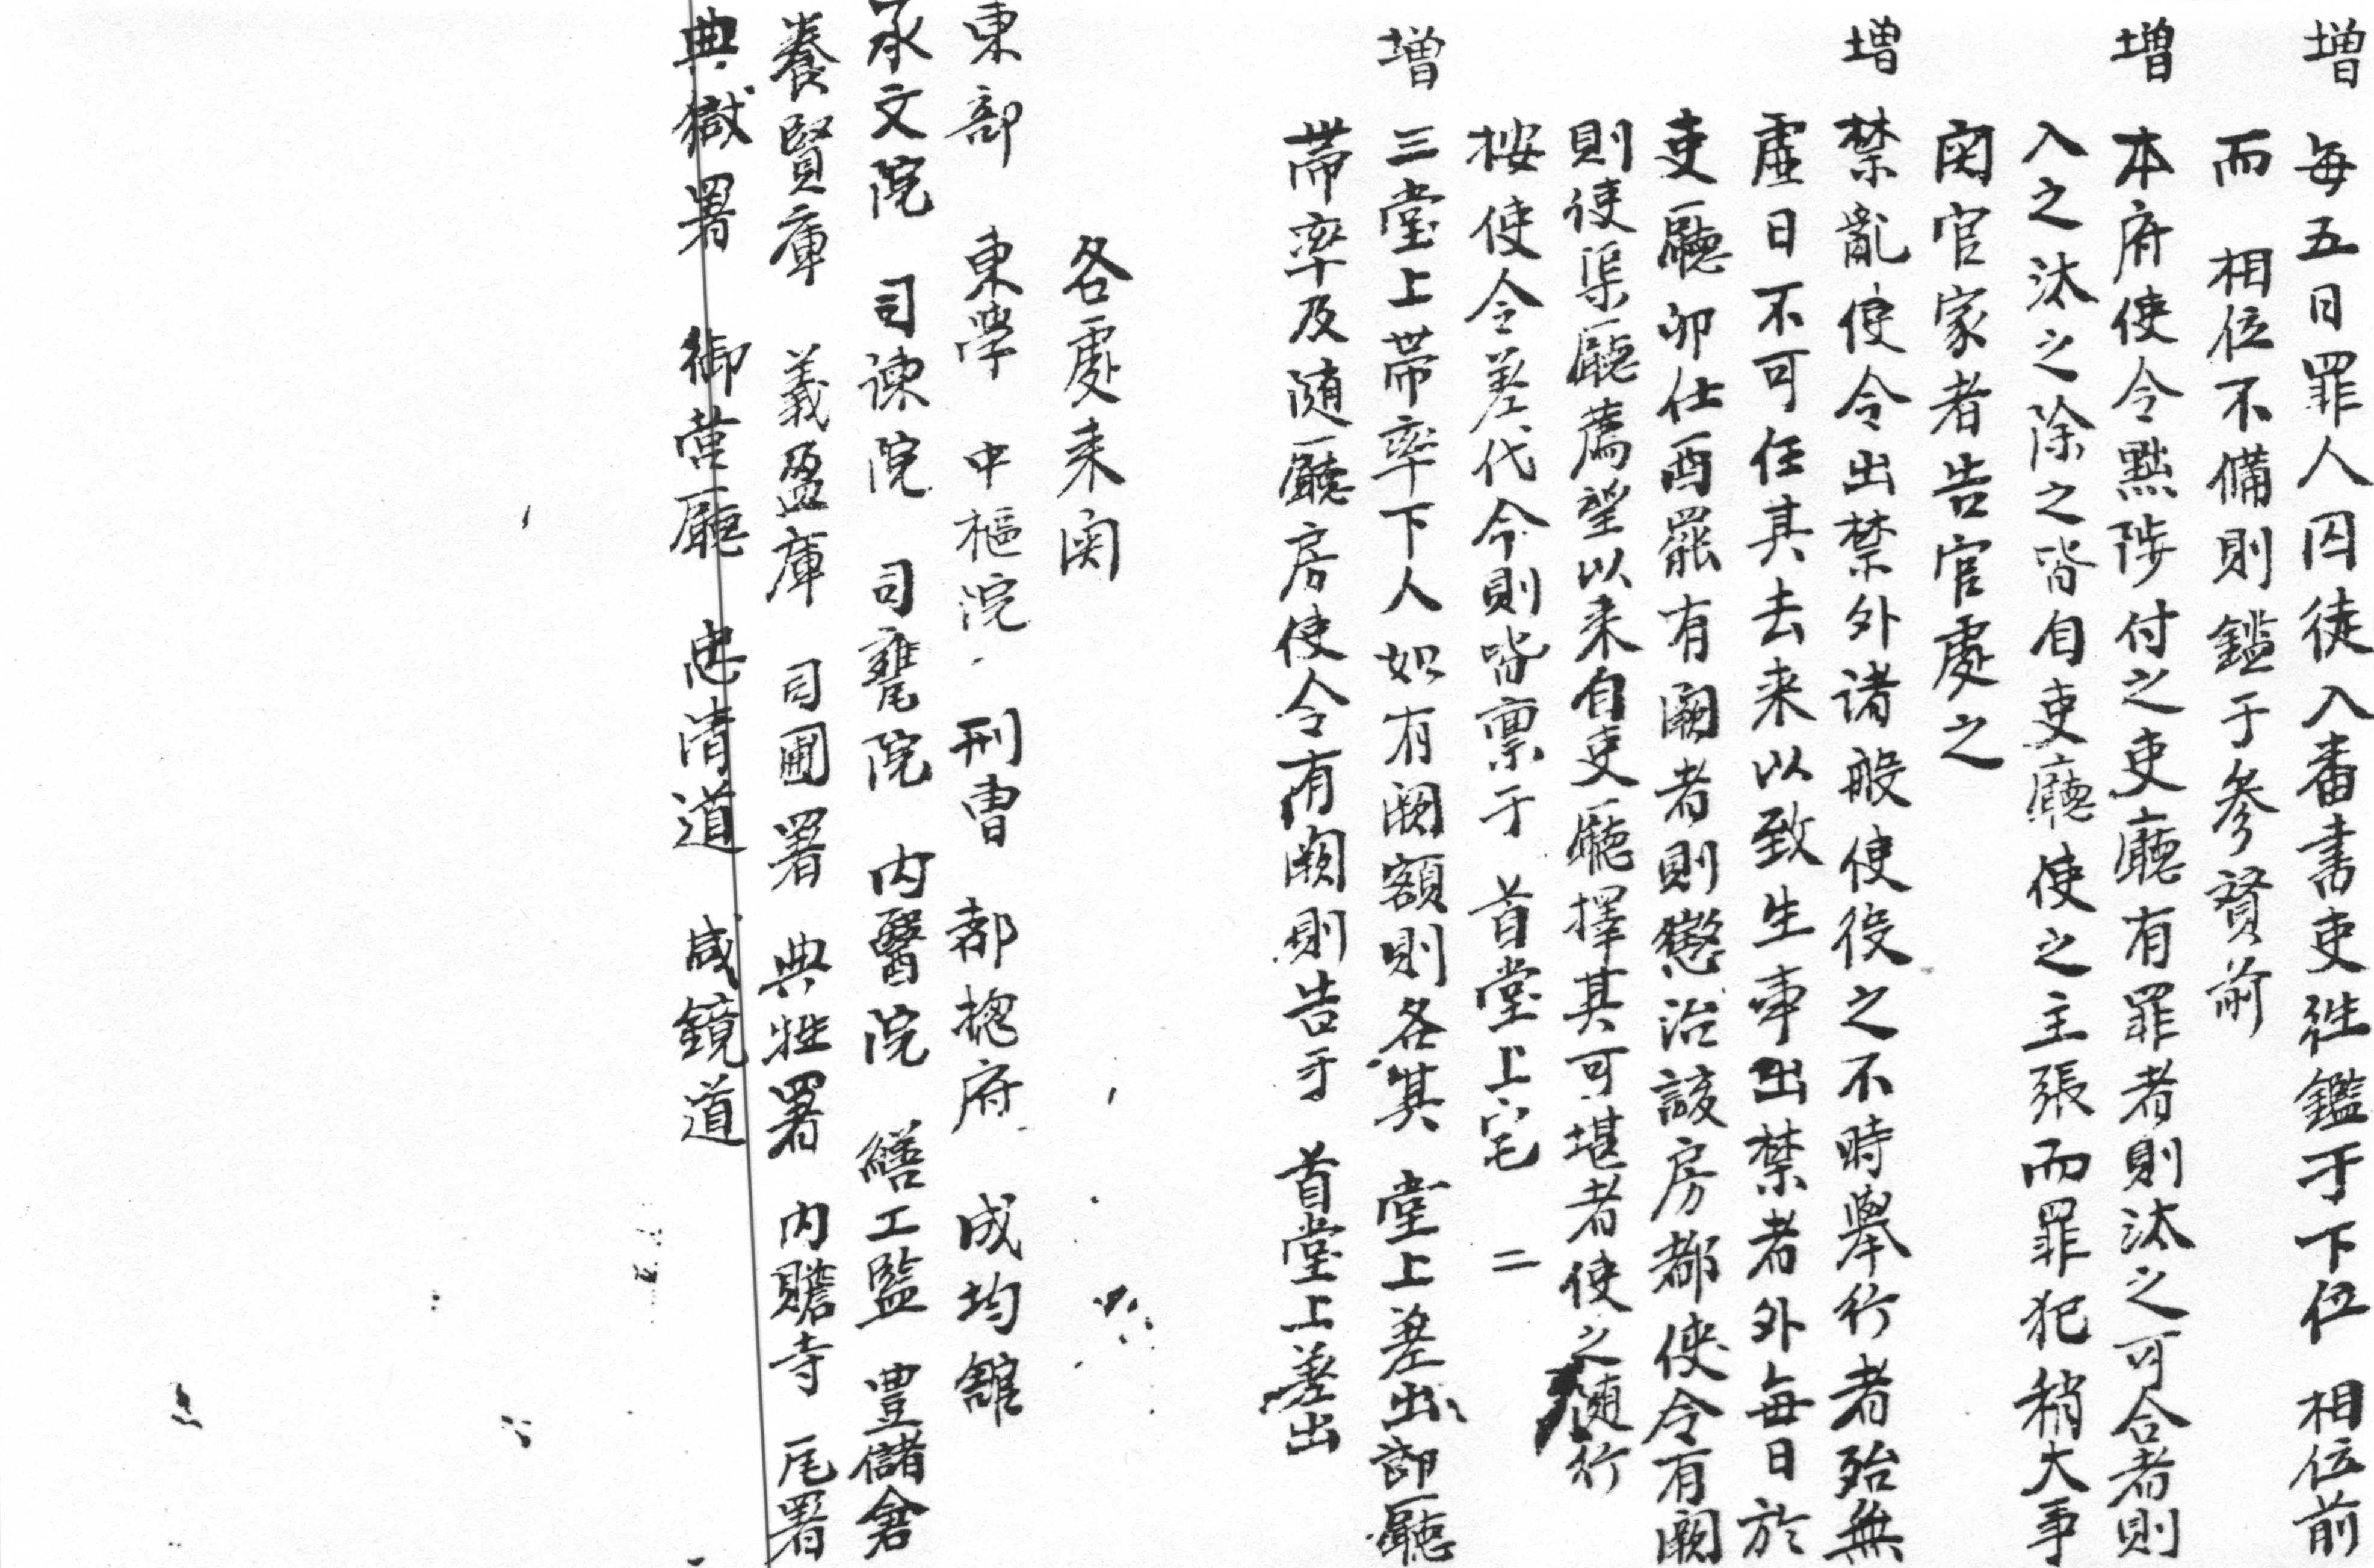 增 每五日罪人囚徒入番書吏往鑑于下位 相位前
而 相位不備則鑑于參贊前
增 本府使令黜陟付之吏廳有罪者則汰之可合者則
入之汰之除之皆自吏廳使之主張而罪犯稍大事
関官家者告官處之
增 禁亂使令出禁外諸般使役之不時擧行者殆無
虛日不可任其去来以致生事出禁者外每日於
吏廳卯仕酉罷有闕者則懲治該房都使令有闕
則使渠廳薦望以来自吏廳擇其可堪者使之随行
按使令差代今則皆禀于 首堂上宅 二
增 三堂上帶率下人如有闕額則各其 堂上差出郎廳
帶率及随廳房使令有闕則告于 首堂上差出
各處来関
東部 東學 中樞院 刑曺 都摠府 成均舘
承文院 司諫院 司甕院 內醫院 繕工監 豊儲倉
養賢庫 義盈庫 司圃署 典牲署 內贍寺 瓦署
典獄署 御營廳 忠清道 咸鏡道